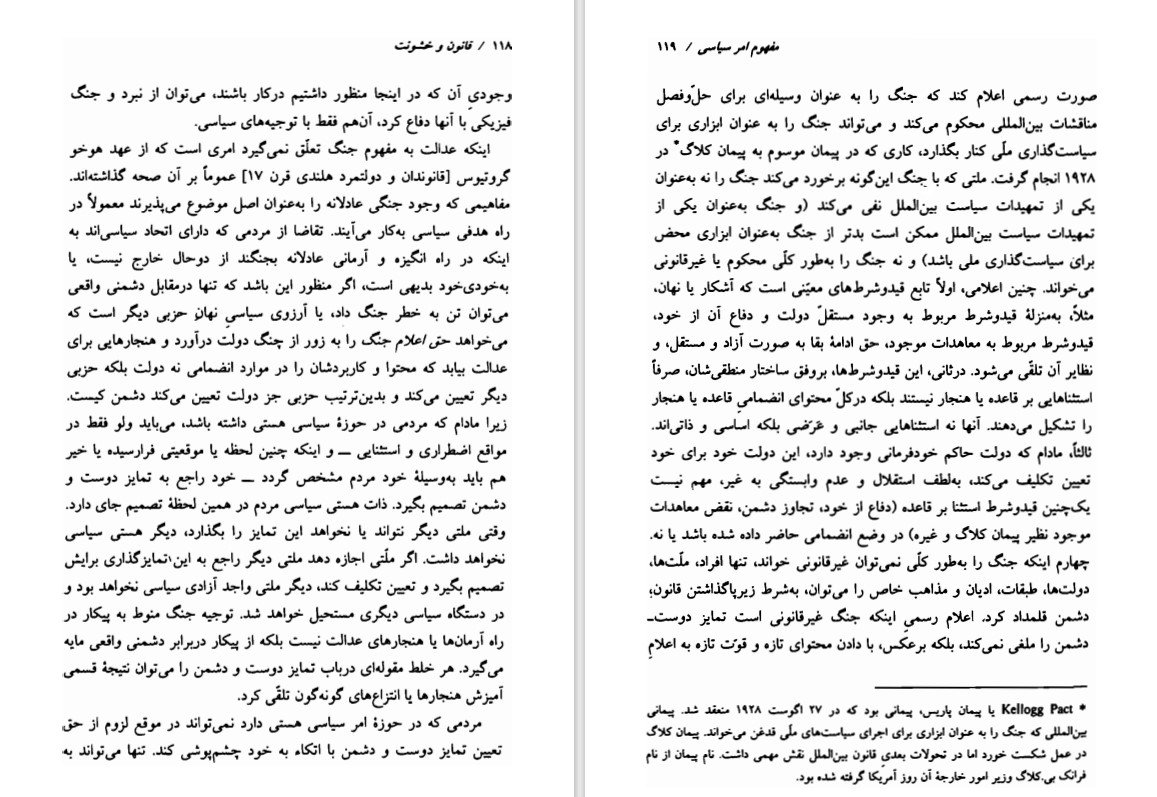 ۱۱۸ / قانون و خشونت
وجودیِ آن که در اینجا منظور داشتیم درکار باشند، می‌توان از نبرد و جنگ
فیزیکی با آنها دفاع کرد، آن‌هم فقط با توجیه‌های سیاسی.
اینکه عدالت به مفهوم جنگ تعلّق نمی‌گیرد امری است که از عهد هوخو
گروتیوس [قانوندان و دولتمرد هلندی قرن ۱۷] عموماً بر آن صحه گذاشته‌اند.
مفاهیمی که وجود جنگی عادلانه را به‌عنوان اصل موضوع می‌پذیرند معمولاً در
راه هدفی سیاسی به‌کار می‌آیند. تقاضا از مردمی که دارای اتحاد سیاسی‌اند به
اینکه در راه انگیزه و آرمانی عادلانه بجنگند از دوحال خارج نیست، یا
به‌خودی‌خود بدیهی است، اگر منظور این باشد که تنها درمقابل دشمنی واقعی
می‌توان تن به خطر جنگ داد، یا آرزوی سیاسیِ نهانِ حزبی دیگر است که
می‌خواهد حق اعلام جنگ را به زور از چنگ دولت درآورد و هنجارهایی برای
عدالت بیابد که محتوا و کاربردشان را در موارد انضمامی نه دولت بلکه حزبی
دیگر تعیین می‌کند و بدین‌ترتیب حزبی جز دولت تعیین می‌کند دشمن کیست.
زیرا مادام که مردمی در حوزهٔ سیاسی هستی داشته باشد، می‌باید ولو فقط در
مواقع اضطراری و استثنایی ــ و اینکه چنین لحظه یا موقعیتی فرارسیده یا خیر
هم باید به‌وسیلهٔ خود مردم مشخص گردد ــ خود راجع به تمایز دوست و
دشمن تصمیم بگیرد. ذات هستی سیاسی مردم در همین لحظهٔ تصمیم جای دارد.
وقتی ملتی دیگر نتواند یا نخواهد این تمایز را بگذارد، دیگر هستی سیاسی
نخواهد داشت. اگر ملّتی اجازه دهد ملتی دیگر راجع به این تمایزگذاری برایش
تصمیم بگیرد و تعیین تکلیف کند، دیگر ملتی واجد آزادی سیاسی نخواهد بود و
در دستگاه سیاسی دیگری مستحیل خواهد شد. توجیه جنگ منوط به پیکار در
راه آرمان‌ها یا هنجارهای عدالت نیست بلکه از پیکار دربرابر دشمنی واقعی مایه
می‌گیرد. هر خلط مقوله‌ای درباب تمایز دوست و دشمن را می‌توان نتیجهٔ قسمی
آمیزش هنجارها یا انتزاع‌های گونه‌گون تلقّی کرد.
مردمی که در حوزهٔ امر سیاسی هستی دارد نمی‌تواند در موقع لزوم از حق
تعیین تمایز دوست و دشمن با اتکاء به خود چشم‌پوشی کند. تنها می‌تواند به
مفهوم امر سیاسی / ۱۱۹
صورت رسمی اعلام کند که جنگ را به عنوان وسیله‌ای برای حلّ‌وفصل
مناقشات بین‌المللی محکوم می‌کند و می‌تواند جنگ را به عنوان ابزاری برای
سیاست‌گذاری ملّی کنار بگذارد، کاری که در پیمان موسوم به پیمان کلاگ* در
۱۹۲۸ انجام گرفت. ملتی که با جنگ این‌گونه برخورد می‌کند جنگ را نه به‌عنوان
یکی از تمهیدات سیاست بین‌الملل نفی می‌کند (و جنگ به‌عنوان یکی از
تمهیدات سیاست بین‌الملل ممکن است بدتر از جنگ به‌عنوان ابزاری محض
برای سیاست‌گذاری ملی باشد) و نه جنگ را به‌طور کلّی محکوم یا غیرقانونی
می‌خواند. چنین اعلامی، اولاً تابع قیدوشرط‌های معیّنی است که آشکار یا نهان،
مثلاً، به‌منزلهٔ قیدوشرط مربوط به وجود مستقلّ دولت و دفاع آن از خود،
قیدوشرط مربوط به معاهدات موجود، حق ادامهٔ بقا به صورت آزاد و مستقل، و
نظایر آن تلقّی می‌شود. درثانی، این قیدوشرط‌ها، بروفق ساختار منطقی‌شان، صرفاً
استثناهایی بر قاعده یا هنجار نیستند بلکه درکلّ محتوای انضمامیِ قاعده یا هنجار
را تشکیل می‌دهند. آنها نه استثناهایی جانبی و عَرَضی بلکه اساسی و ذاتی‌اند.
ثالثاً، مادام که دولت حاکم خودفرمانی وجود دارد، این دولت خود برای خود
تعیین تکلیف می‌کند، به‌لطف استقلال و عدم وابستگی به غیر، مهم نیست
یک‌چنین قیدوشرط استثنا بر قاعده (دفاع از خود، تجاوز دشمن، نقض معاهدات
موجود نظیر پیمان کلاگ و غیره) در وضع انضمامی حاضر داده شده باشد یا نه.
چهارم اینکه جنگ را به‌طور کلّی نمی‌توان غیرقانونی خواند، تنها افراد، ملّت‌ها،
دولت‌ها، طبقات، ادیان و مذاهب خاص را می‌توان، به‌شرط زیرپاگذاشتن قانون،
دشمن قلمداد کرد. اعلام رسمیِ اینکه جنگ غیرقانونی است تمایز دوست‌ـ
دشمن را ملغی نمی‌کند، بلکه برعکس، با دادن محتوای تازه و قوّت تازه به اعلامِ
* Kellogg Pact یا پیمان پاریس، پیمانی بود که در ۲۷ اگوست ۱۹۲۸ منعقد شد. پیمانی
بین‌المللی که جنگ را به عنوان ابزاری برای اجرای سیاست‌های ملّی قدغن می‌خواند. پیمان کلاگ
در عمل شکست خورد اما در تحولات بعدی قانون بین‌الملل نقش مهمی داشت. نام پیمان از نام
فرانک بی.کلاگ وزیر امور خارجهٔ آن روز آمریکا گرفته شده بود.